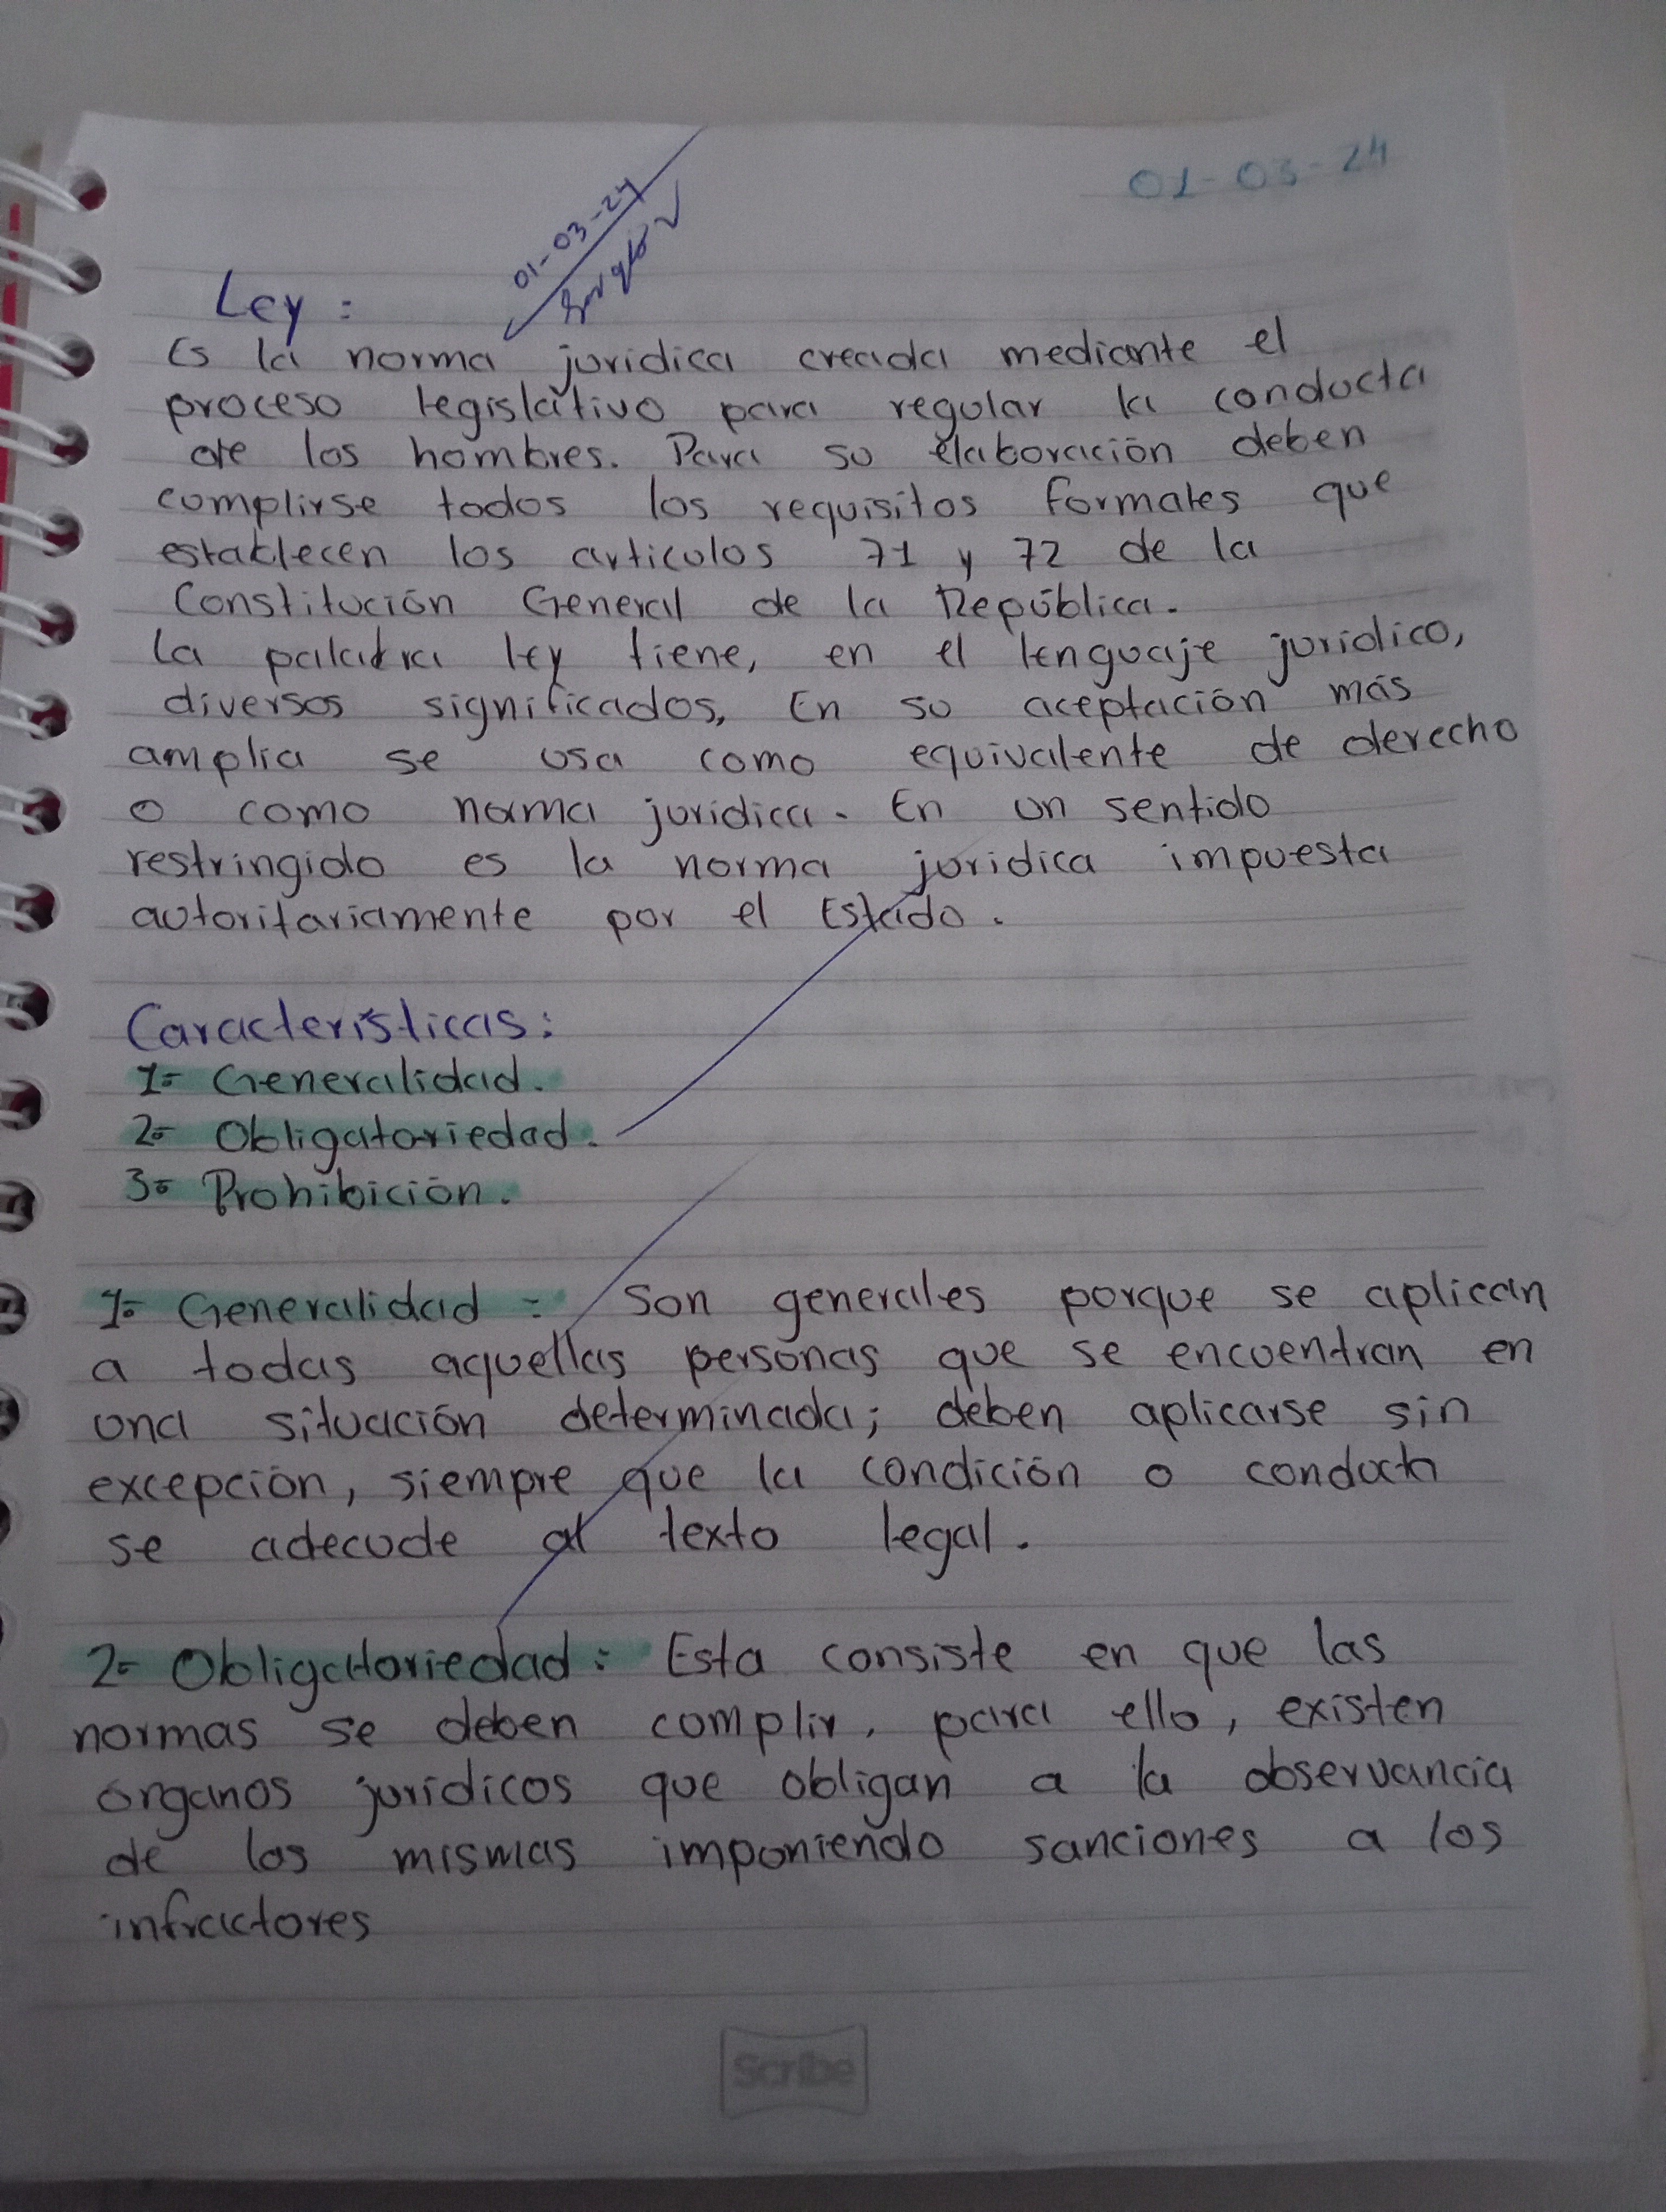 01-03-24
01-03-24
Ley:
Es la norma juridica creada mediante el
proceso legislativo para regular la conducta
de los hombres. Para su elaboración deben
cumplirse todos los requisitos formales que
establecen los articulos 71 y 72 de la
Constitución General de la República.
La palabra ley tiene, en el lenguaje jurídico,
diversos significados, En su aceptación más
amplia se usa como equivalente de derecho
o como norma juridica. En un sentido
restringido es la norma juridica impuesta
autoritariamente por el Estado.
Características:
1- Generalidad.
2- Obligatoriedad.
3- Prohibición.
1- Generalidad: Son generales porque se aplican
a todas aquellas personas que se encuentran en
una situación determinada; deben aplicarse sin
excepción, siempre que la condición o conducta
se adecude al texto legal.
2- Obligatoriedad: Esta consiste en que las
normas se deben cumplir, para ello, existen
órganos jurídicos que obligan a la observancia
de las mismas imponiendo sanciones a los
infractores
Scribe